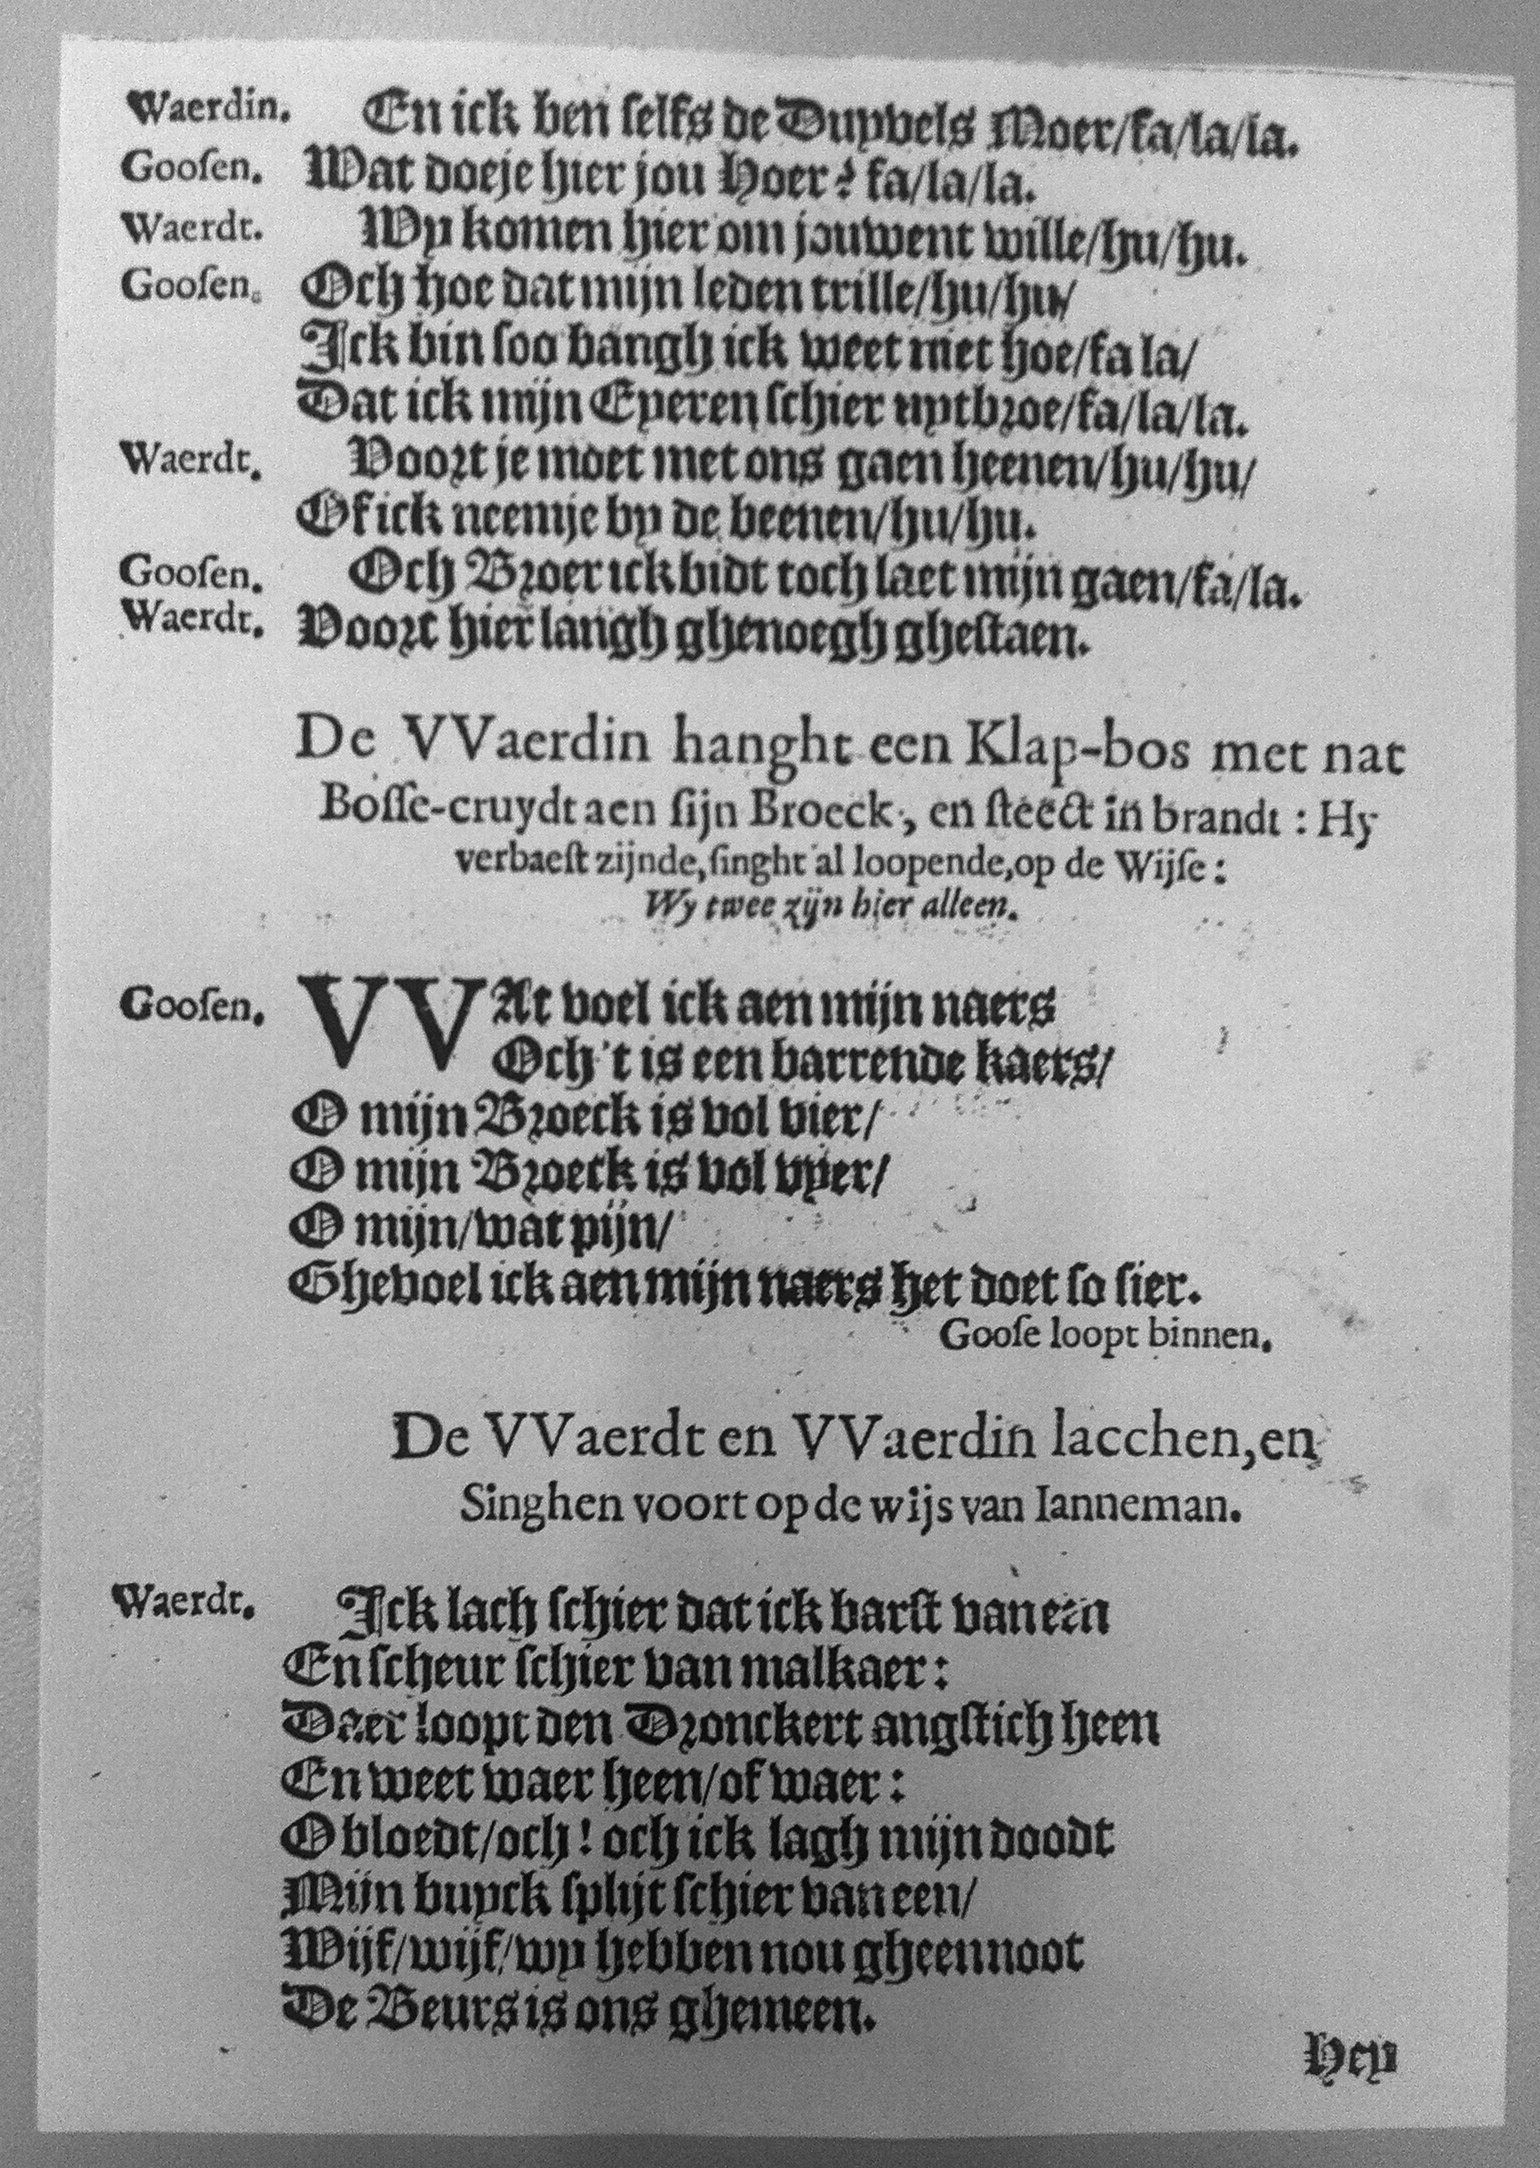 Waerdin. En ick ben ſelfs de Duyvels Moer/fa/la/la.
Gooſen. Wat doeje hier jou Hoer? fa/la/la.
Waerdt. Wy komen hier om jouwent wille/hu/hu.
Gooſen. Och hoe dat mijn leden trille/hu/hu/
Ick bin ſoo bangh ick weet niet hoe/fa la/
Dat ick mijn Eyeren ſchier uytbroe/fa/la/la.
Waerdt. Voort je moet met ons gaen heenen/hu/hu/
Of ick neemje by de beenen/hu/hu.
Gooſen. Och Broer ick bidt toch laet mijn gaen/fa/la.
Waerdt. Voort hier langh ghenoegh gheſtaen.
De VVaerdin hanght een Klap-bos met nat
Boſſe-cruydt aen ſijn Broeck, en ſteect in brandt : Hy
verbaeſt zijnde, ſinght al loopende, op de Wijſe:
Wy twee zijn hier alleen.
Gooſen. VVAt voel ick aen mijn naers
Och 't is een barrende kaers/
O mijn Broeck is vol vier/
O mijn Broeck is vol vyer/
O mijn/wat pijn/
Ghevoel ick aen mijn naers het doet ſo ſier.
Gooſe loopt binnen.
De VVaerdt en VVaerdin lacchen, en
Singhen voort op de wijs van Ianneman.
Waerdt. Ick lach ſchier dat ick barſt van een
En ſcheur ſchier van malkaer:
Daer loopt den Dronckert angſtich heen
En weet waer heen/of waer:
O bloedt/och! och ick lagh mijn doodt
Mijn buyck ſplijt ſchier van een/
Wijf/wijf/wy hebben nou gheen noot
De Beurs is ons ghemeen.
Hey